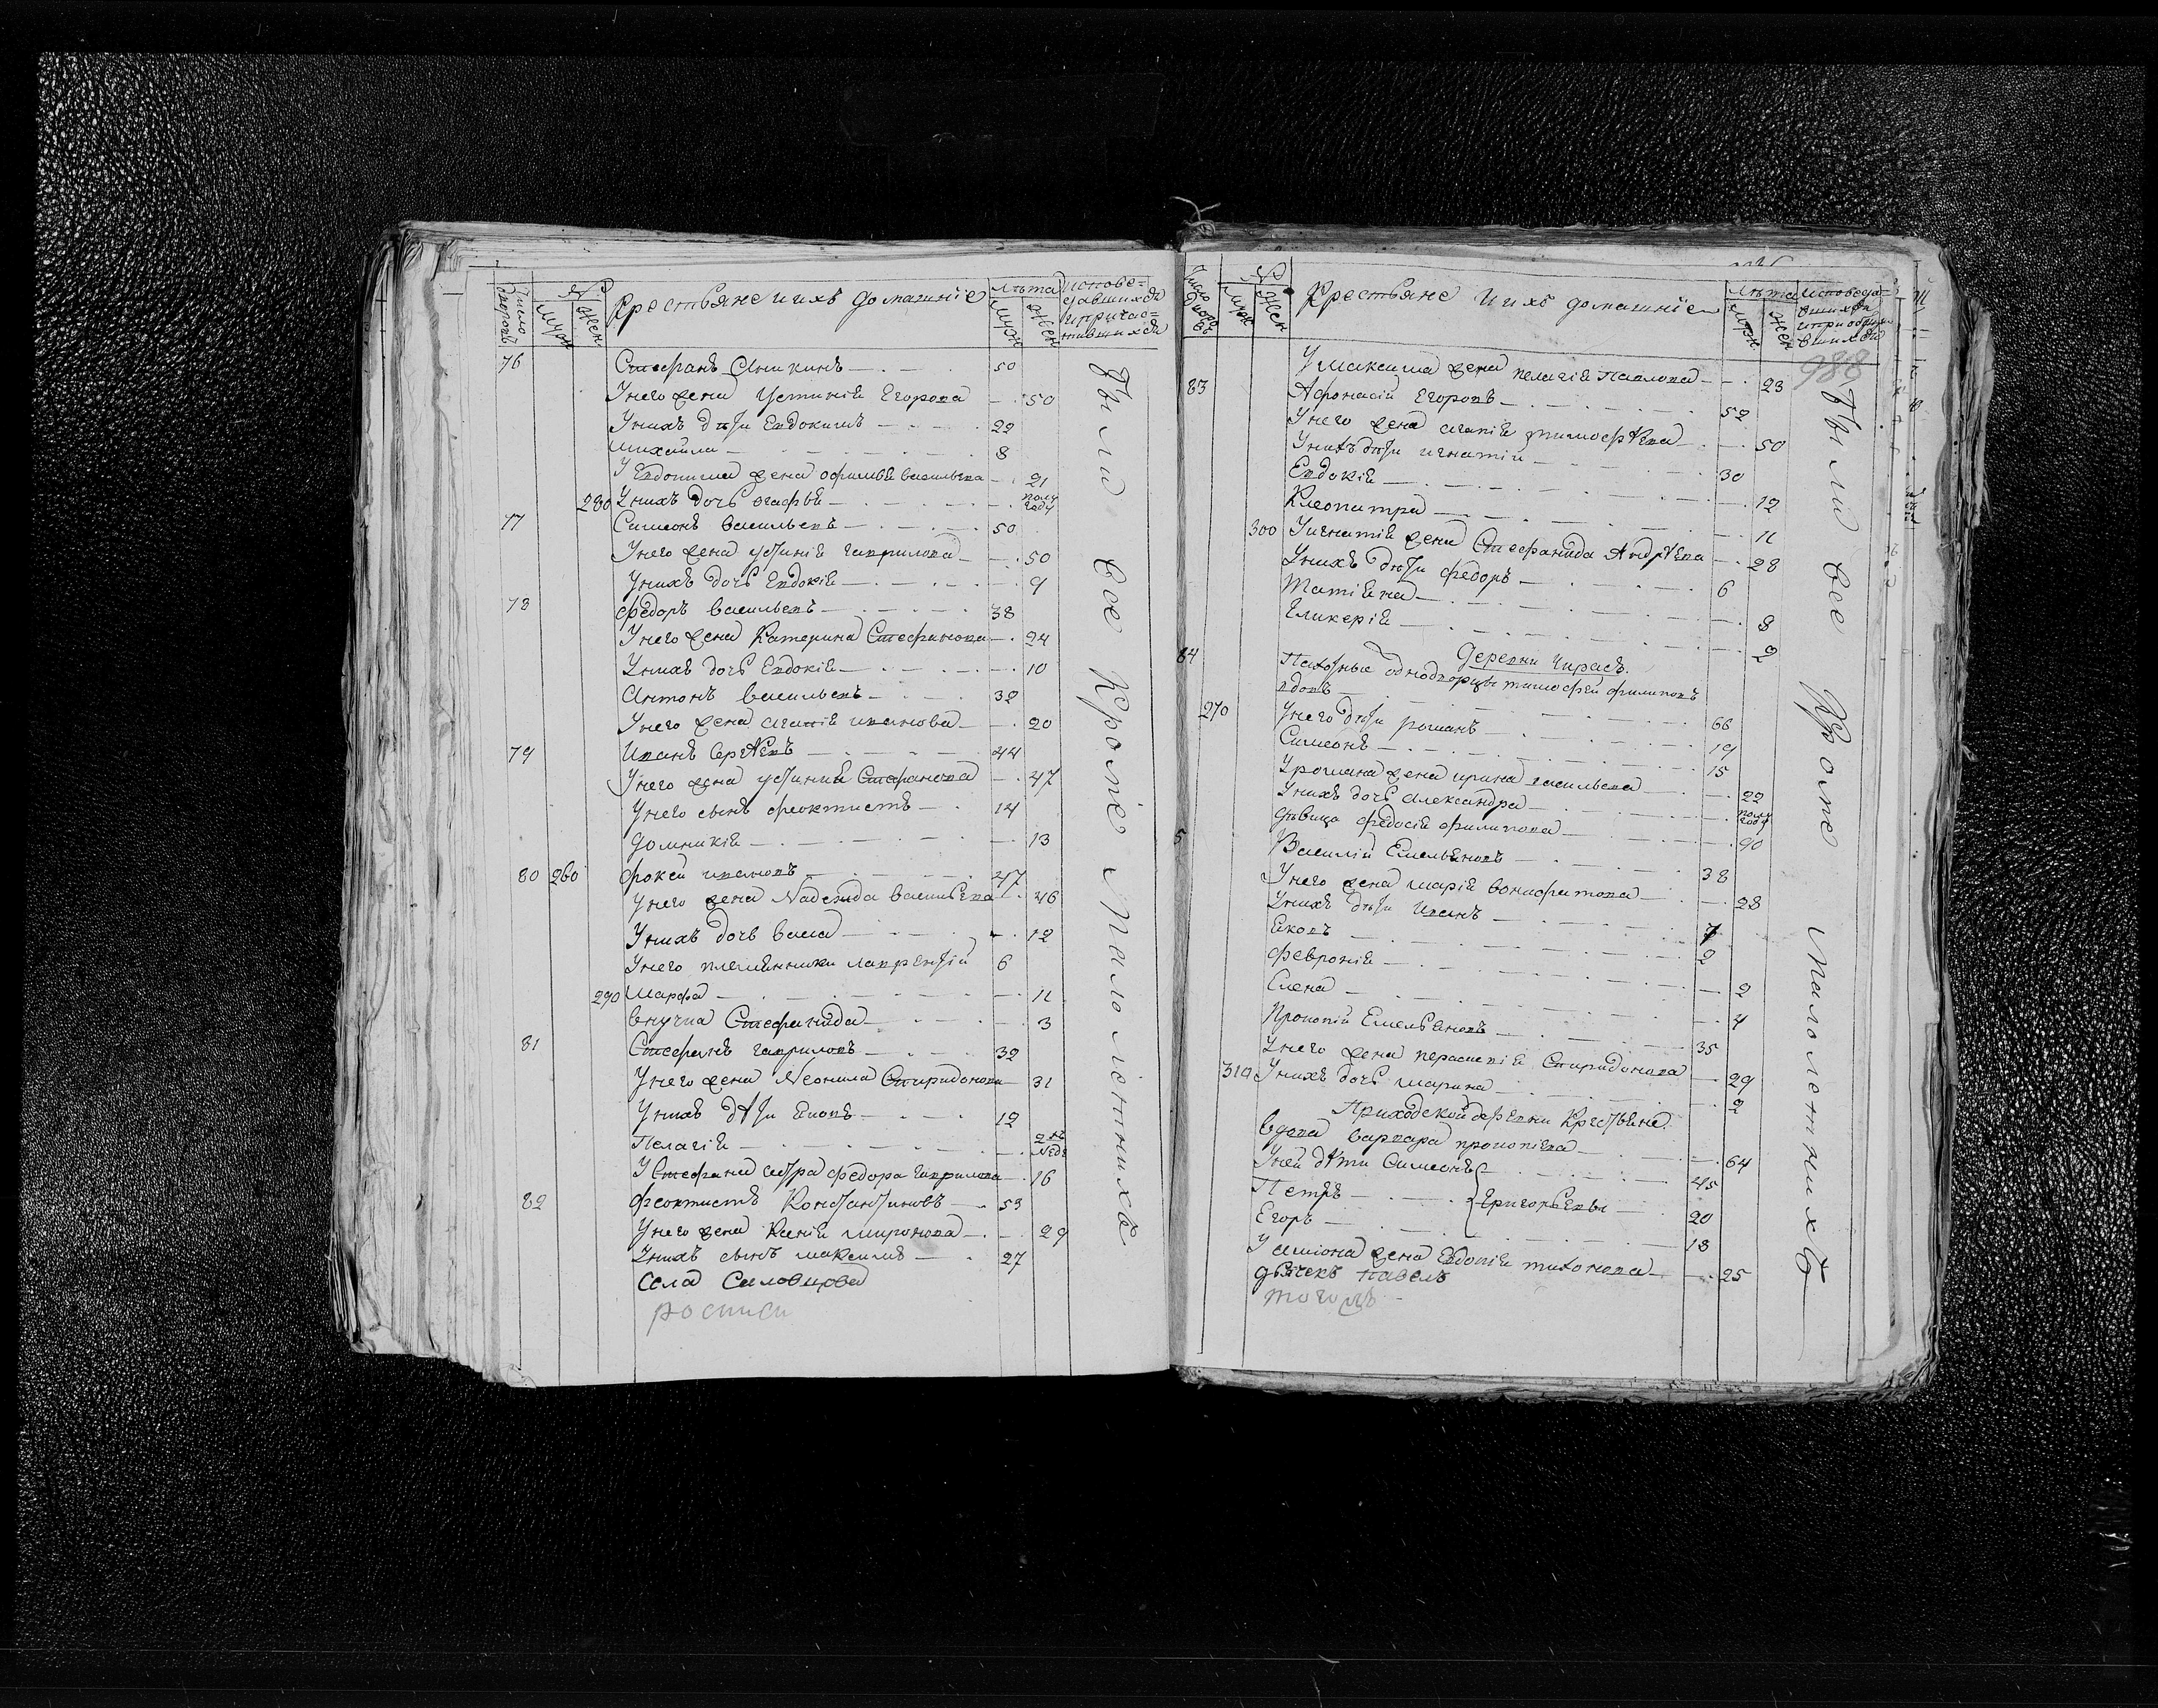 Число дворовъ № муж жен Крестьяне и ихъ домашніе лѣта муж жен исповедавшихся и причастившихся
76 Стефанъ Аникинъ 50
У него жена Устинія Егорова 50
У нихъ дѣти Евдокимъ 22
Михайла 8
У Евдокима жена Офимья Васильева 21
280 У нихъ дочь Агафья полугоду
77 Симеонъ Васильевъ 50
У него жена Устинія Гаврилова 50
У нихъ дочь Евдокія 9
78 Федоръ Васильевъ 38
У него жена Катерина Стефанова 24
У нихъ дочь Евдокія 10
Антонъ Васильевъ 32
У него жена Агапія Иванова 20
79 Иванъ Сергѣевъ 44
У него жена Устинія Стефанова 47
У него сынъ Феоктистъ 14
Домникія 13
80 260 Фокей Ивановъ 47
У него жена Надежда Васильева 46
У нихъ дочь Васса 12
У него племянники Лаврентій 6
290 Марфа 11
Внучка Стефанида 3
81 Стефанъ Гавриловъ 32
У него жена Неонила Спиридонова 31
У нихъ дѣти Яковъ 12
Пелагія 2хъ неде
У Стефана сестра Федора Гаврилова 16
82 Феоктистъ Константиновъ 53
У него жена Ксенія Миронова 29
У нихъ сынъ Максимъ 27
Села
росписи
Были все кроме малолетнихъ
Число дворовъ № муж жен Крестьяне и ихъ домашніе лѣта муж жен исповедавшихся и приобщившихся
988
У Максима жена Пелагія Павлова 23
83 Афонасій Егоровъ 52
У него жена Агапія Тимофѣева 50
У нихъ дѣти Игнатій 30
Евдокія 12
Клеопатра 11
300 У Игнатія жена Стефанида Андрѣева 28
У нихъ дѣти Федоръ 6
Татіяна 8
Гликерія 2
Деревни
84 Пахотные однодворцы Тимофей Филиповъ
вдовъ 66
270 У него дѣти Романъ 19
Симеонъ 15
У Романа жена Ирина Васильева 22
У нихъ дочь Александра полугоду
Дѣвица Федосія Филипова 90
5 Василій Емельяновъ 38
У него жена Марія Вонифатова 28
У нихъ дѣти Иванъ 7
Яковъ 2
Февронія 2
Елена 4
Прокопій Емельяновъ 35
У него жена Параскевія Спиридонова 29
310 У нихъ дочь Марина 2
Приходской деревни Крестьяне
Вдова Варвара Прокопіева 64
У ней дѣти Симеонъ 45
Петръ Григорьевы 20
Егоръ 18
У Симіона жена Евдокія Тихонова 25
дьячекъ Павелъ
Были все кроме малолетнихъ